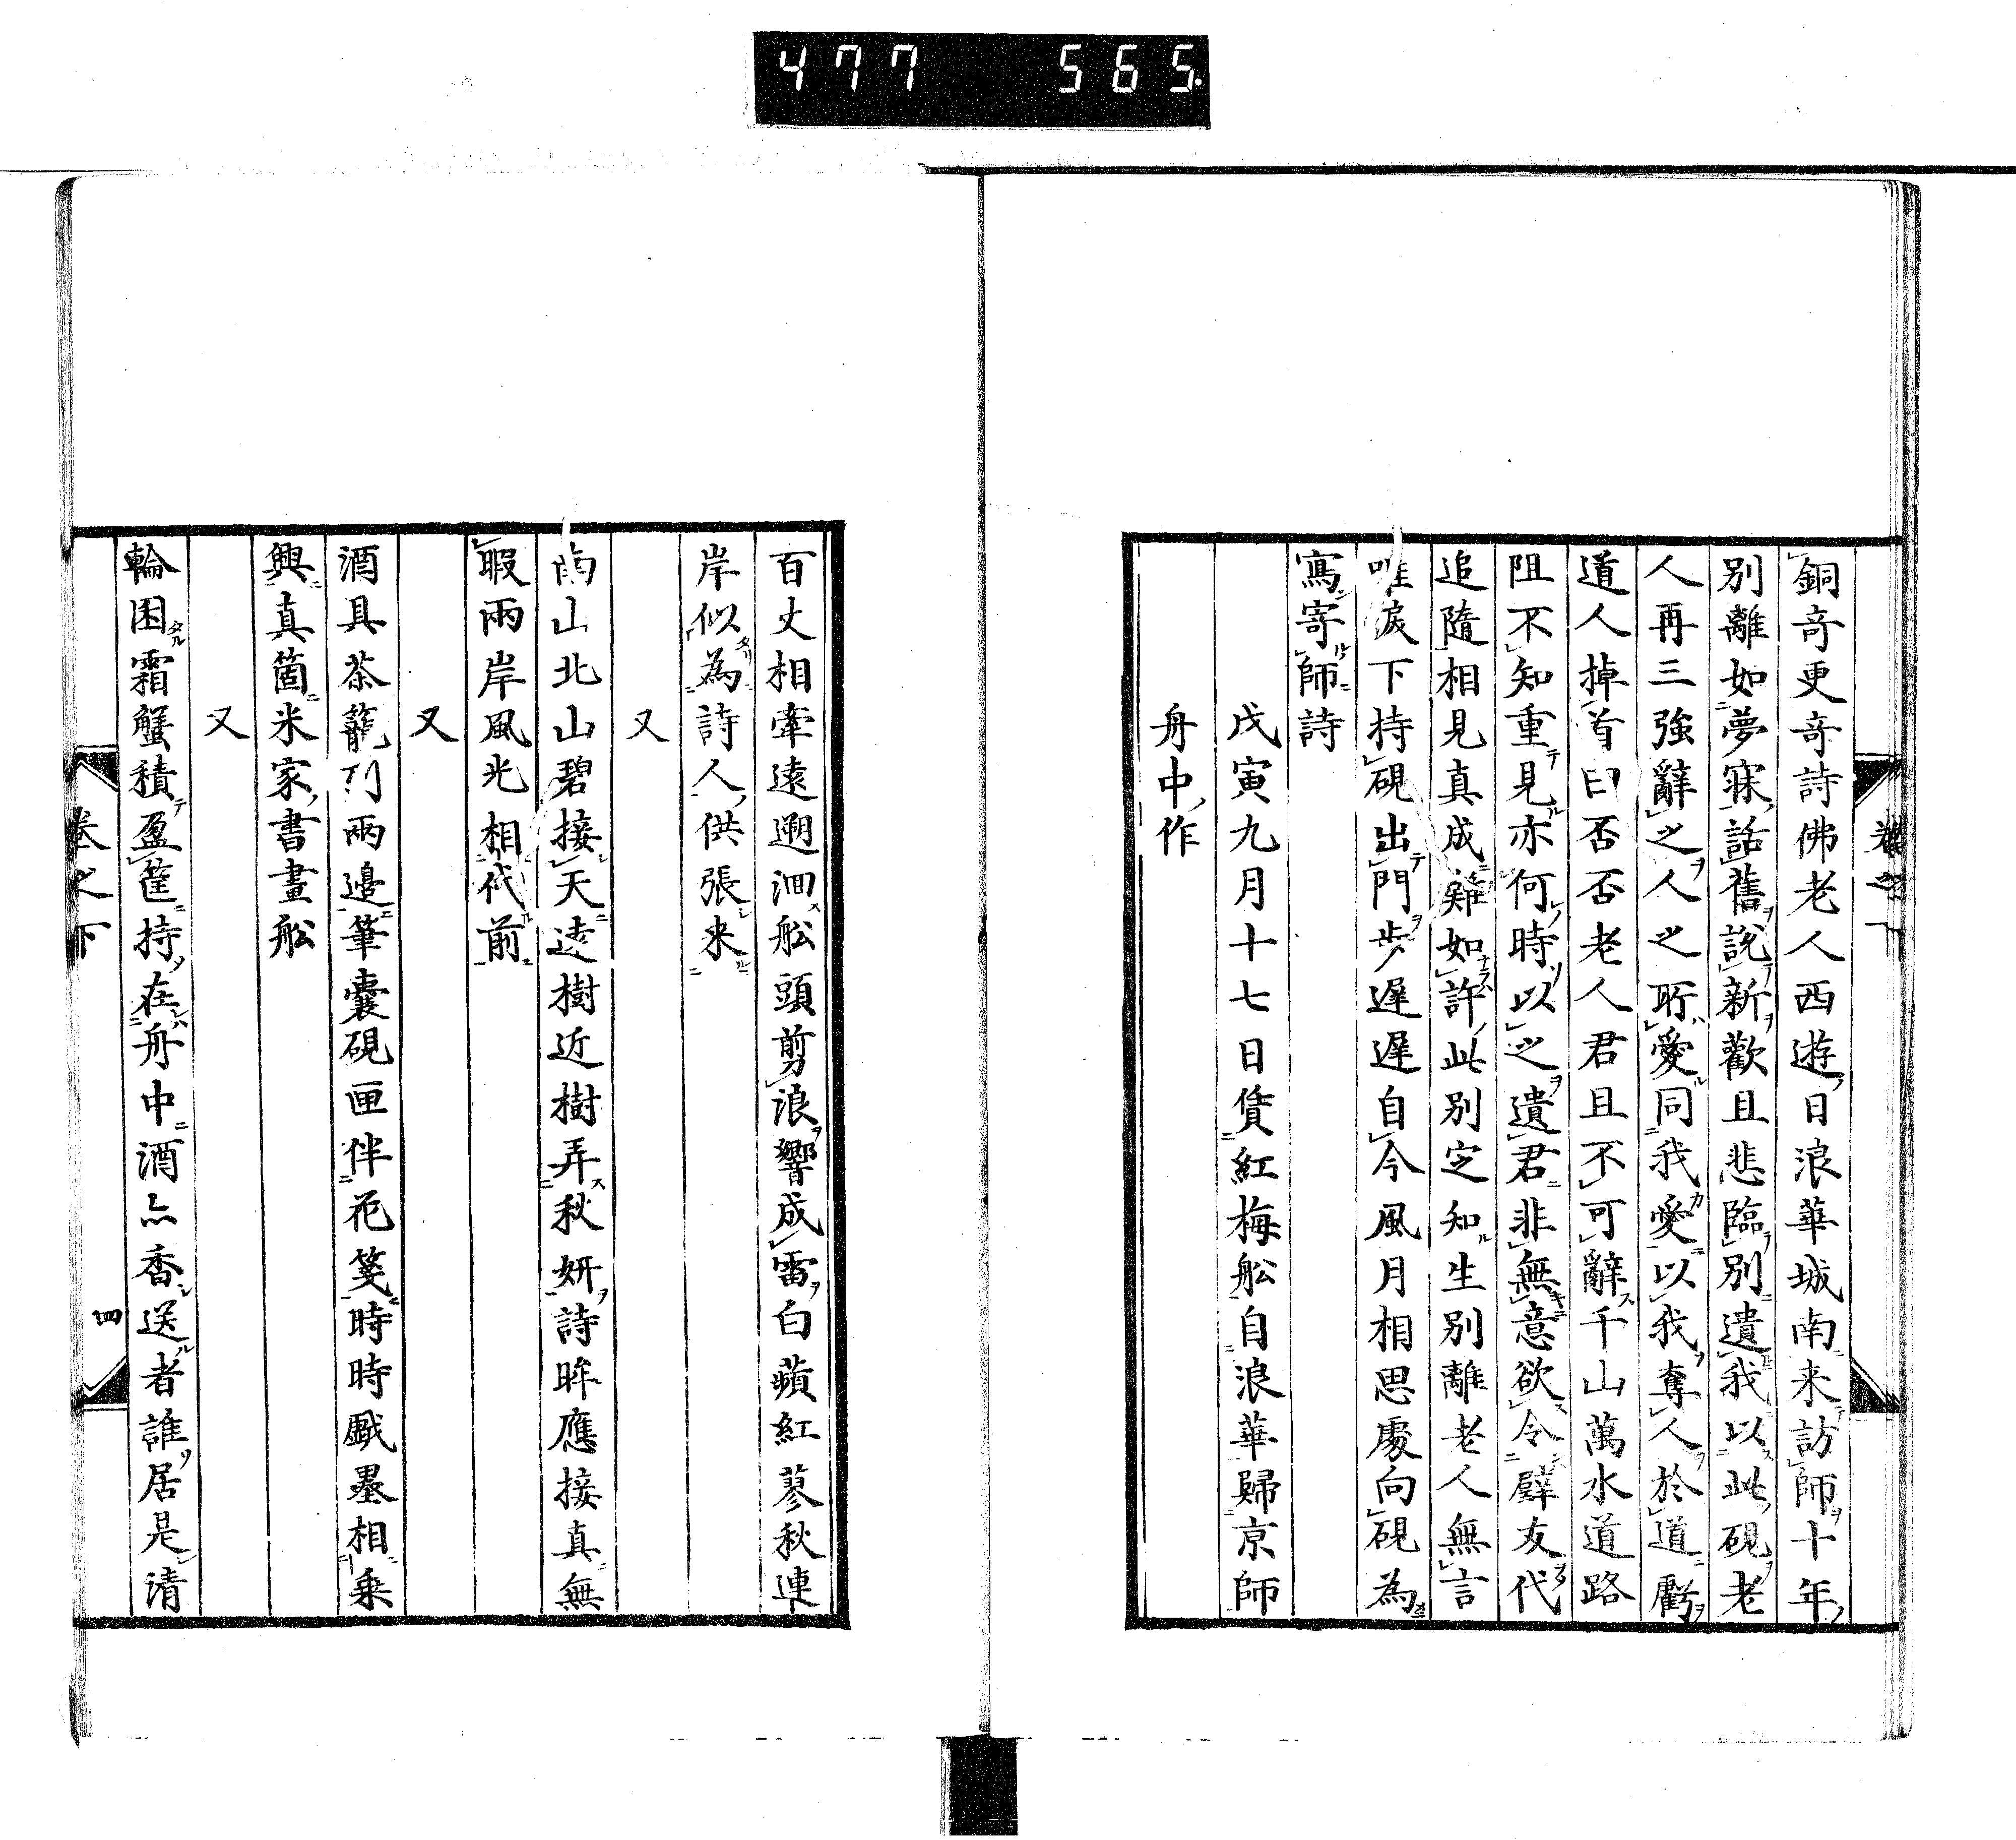 477 565
銅奇更奇詩佛老人西遊日浪華城南来訪師十年
別離如夢寐話舊說新歡且悲臨別遺我以此硯老
人再三強辭之人之所愛同我愛以我奪人於道虧
道人掉首曰否否老人君且不可辭千山萬水道路
阻不知重見亦何時以之遺君非無意欲令躄友代
追隨相見真成難如許此別定知生別離老人無言
唯淚下持硯出門步遲遲自今風月相思處向硯為
寫寄師詩
戊寅九月十七日賃紅梅舩自浪華歸京師
舟中作
百丈相牽遠遡洄舩頭剪浪響成雷白蘋紅蓼秋連
岸似為詩人供張来
又
南山北山碧接天遠樹近樹弄秋妍詩眸應接真無
暇兩岸風光相代前
又
酒具茶籠列兩邊筆囊硯匣伴花箋時時戲墨相乗
興真箇米家書畫舩
又
輪囷霜蟹積盈筐持在舟中酒亦香送者誰居是清
卷之下
四